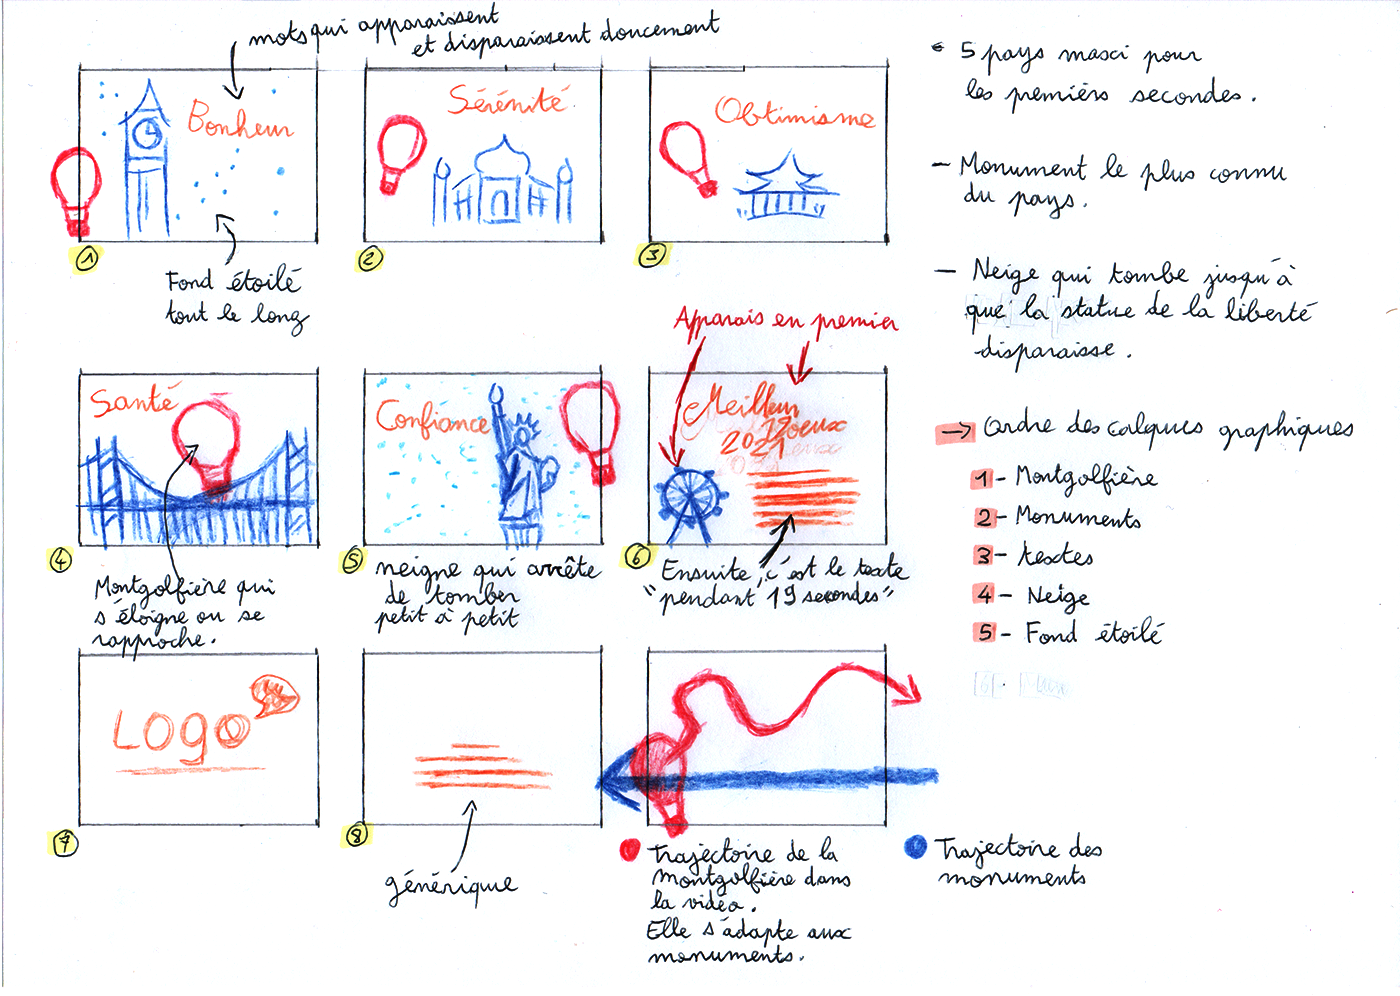 mots qui apparaissent
et disparaissent doucement
Bonheur
Sérénité
Obtimisme
1
2
3
Fond étoilé
tout le long
Apparais en premier
Santé
Confiance
Meilleur
2021
4
5
6
Montgolfière qui
s'éloigne ou se
rapproche.
neigne qui arrête
de tomber
petit à petit
Ensuite, c'est le texte
"pendant 19 secondes"
LOGO
7
8
générique
Trajectoire de la
montgolfière dans
la vidéo.
Elle s'adapte aux
monuments.
Trajectoire des
monuments
5 pays maxi pour
les premiers secondes.
- Monument le plus connu
du pays.
- Neige qui tombe jusqu'à
que la statue de la liberté
disparaisse.
→ Ordre des calques graphiques
1 - Montgolfière
2 - Monuments
3 - textes
4 - Neige
5 - Fond étoilé